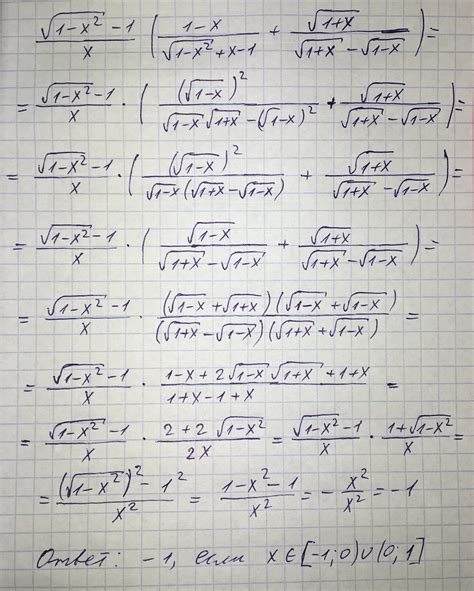 \frac{\sqrt{1-x^2}-1}{x} \left( \frac{1-x}{\sqrt{1-x^2}+x-1} + \frac{\sqrt{1+x}}{\sqrt{1+x}-\sqrt{1-x}} \right) =
= \frac{\sqrt{1-x^2}-1}{x} \cdot \left( \frac{(\sqrt{1-x})^2}{\sqrt{1-x}\sqrt{1+x}-(\sqrt{1-x})^2} + \frac{\sqrt{1+x}}{\sqrt{1+x}-\sqrt{1-x}} \right) =
= \frac{\sqrt{1-x^2}-1}{x} \cdot \left( \frac{(\sqrt{1-x})^2}{\sqrt{1-x}(\sqrt{1+x}-\sqrt{1-x})} + \frac{\sqrt{1+x}}{\sqrt{1+x}-\sqrt{1-x}} \right) =
= \frac{\sqrt{1-x^2}-1}{x} \cdot \left( \frac{\sqrt{1-x}}{\sqrt{1+x}-\sqrt{1-x}} + \frac{\sqrt{1+x}}{\sqrt{1+x}-\sqrt{1-x}} \right) =
= \frac{\sqrt{1-x^2}-1}{x} \cdot \frac{(\sqrt{1-x}+\sqrt{1+x})(\sqrt{1-x}+\sqrt{1-x})}{(\sqrt{1+x}-\sqrt{1-x})(\sqrt{1+x}+\sqrt{1-x})} =
= \frac{\sqrt{1-x^2}-1}{x} \cdot \frac{1-x+2\sqrt{1-x}\sqrt{1+x}+1+x}{1+x-1+x} =
= \frac{\sqrt{1-x^2}-1}{x} \cdot \frac{2+2\sqrt{1-x^2}}{2x} = \frac{\sqrt{1-x^2}-1}{x} \cdot \frac{1+\sqrt{1-x^2}}{x} =
= \frac{(\sqrt{1-x^2})^2-1^2}{x^2} = \frac{1-x^2-1}{x^2} = -\frac{x^2}{x^2} = -1
Ответ: -1, если x∈[-1;0)∪(0;1]